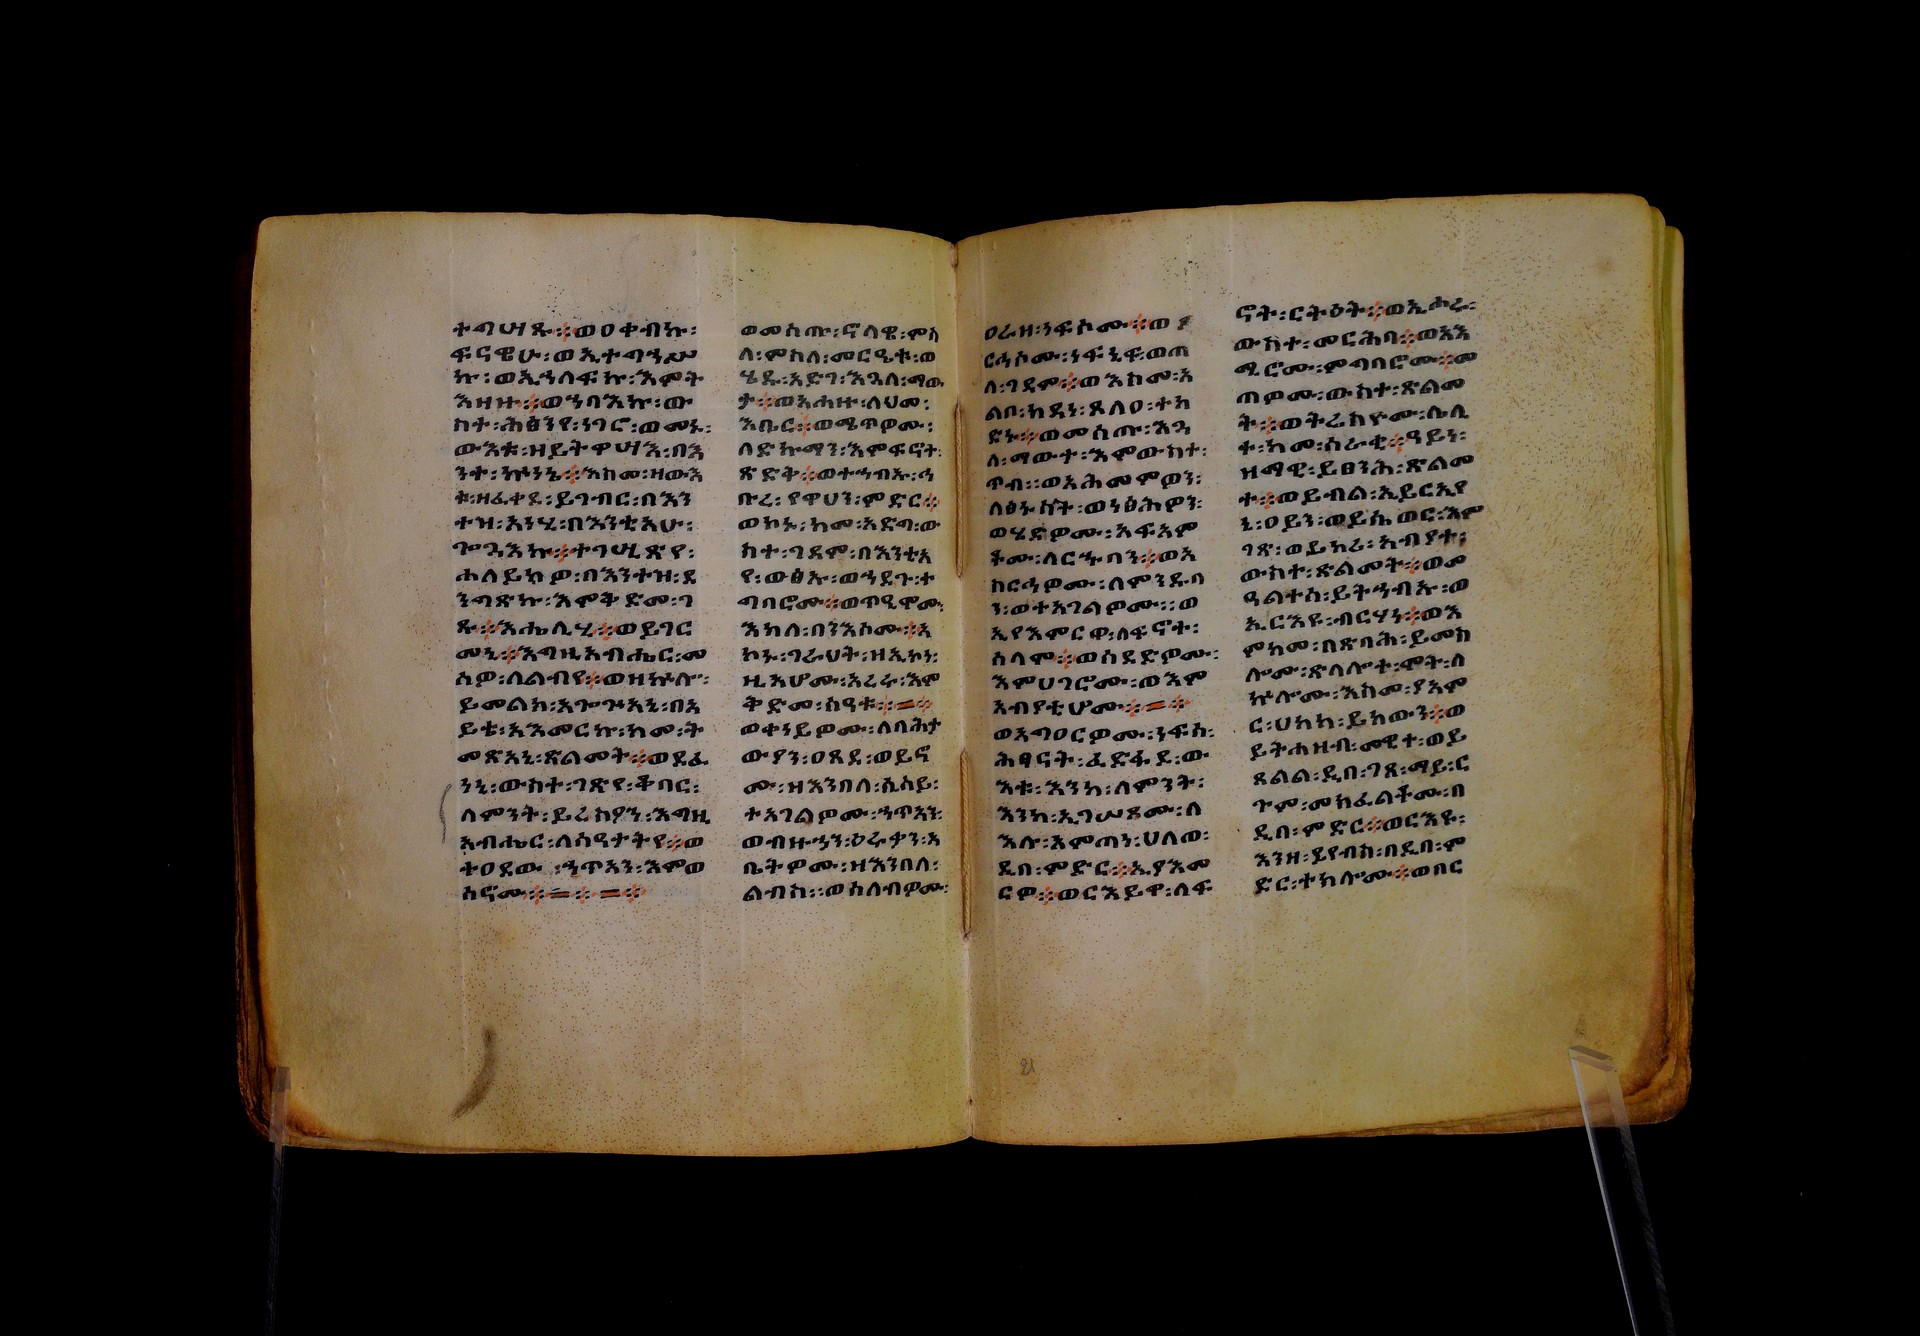 ተግሣጹ፨ወዐቀብኩ፡
ፍናዊሁ፡ወኢተግኅሥ
ኩ፡ወኢኀለፍኩ፡እምት
እዛዙ፨ወኀባእኩ፡ው
ስተ፡ሕፅንየ፡ነገሮ፡ወመኑ፡
ውእቱ፡ዘይትዋሣእ፡በእ
ንተ፡ኵነኔ፨እስመ፡ዘውእ
ቱ፡ዘፈቀደ፡ይገብር፡በእን
ተዝ፡አንሂ፡በእንቲአሁ፡
ጐጓእኩ፨ተገሢጽየ፡
ሐለይክዎ፡በእንተዝ፡ደ
ንግጽኩ፡እምቅድመ፡ገ
ጹ፨እሔሊሂ፨ወይገር
መኒ፨እግዚአብሔር፡መ
ሰዎ፡ለልብየ፨ወዘኵሎ፡
ይመልክ፡አጐጕአኒ፡በአ
ይቴ፡አእመርኩ፡ከመ፡ት
መጽአኒ፡ጽልመት፨ወደፈ
ነኒ፡ውስተ፡ገጽየ፡ቆባር፡
ለምንት፡ይረስዖን፡እግዚ
አብሔር፡ለሰዓታትየ፨ወ
ተዐደው፡ኀጥአን፡እምወ
ሰኖሙ፨=፨=፨
ወመሰጡ፡ኖላዊ፡ምስ
ለ፡ምስለ፡መርዔቱ፡ወ
ሄዱ፡አድገ፡እጓለ፡ማው
ታ፨ወአሐዙ፡ላህመ፡
እቤር፨ወሜጥዎሙ፡
ለድኩማን፡እምፍኖተ፡
ጽድቅ፨ወተኀብኡ፡ኅ
ቡረ፡የዋሀነ፡ምድር፨
ወኮኑ፡ከመ፡አድግ፡ው
ስተ፡ገዳም፡በእንቲአ
የ፡ውፅኡ፡ወኀደጉ፡ተ
ግባሮሙ፨ወጥዒሞሙ፡
እክለ፡በንእሶሙ፨አ
ኮኑ፡ገራህት፡ዘኢኮነ፡
ዚአሆሙ፡አረሩ፡እም
ቅድመ፡ሰዓቱ፨=፨
ወቀነይዎሙ፡ለባሕታ
ውያን፡ዐጸደ፡ወይኖ
ሙ፡ዘእንበለ፡ሲሳይ፡
ተአገልዎሙ፡ኀጥአን፡
ወብዙኀን፡ዕራቃን፡አ
ቤትዎሙ፡ዘእንበለ፡
ልብስ፡፡ወሰለብዎሙ፡
ዐራዘ፡ነፍሶሙ፨ወ
ርኅሶሙ፡ነፍኒፍ፡ወጠ
ለ፡ገዳም፨ወእስመ፡አ
ልቦ፡ክዳነ፡ጸላዐ፡ተከ
ድኑ፨ወመሰጡ፡እጓ
ለ፡ማውታ፡እምውስተ፡
ጥብ፡፡ወአሕመምዎን፡
ለፅኑሳት፡ወነፅሕዎን፡
ወሄድዎሙ፡አፍአም
ቶሙ፡ለርኁባን፨ወአ
ስርኅዎሙ፡ለምንዱባ
ን፡ወተአገልዎሙ፡፡ወ
ኢየአምርዋ፡ለፍኖተ፡
ሰላም፨ወሰደድዎሙ፡
እምሀገሮሙ፡ወእም
አብያቲሆሙ፨=፨
ወአግዐርዎሙ፡ነፍሰ፡
ሕፃናት፡ፈድፋደ፡ው
እቱ፡እንከ፡ለምንት፡
እንከ፡ኢገሠጾሙ፡ለ
እሉ፡እምጠነ፡ሀለወ፡
ዲበ፡ምድር፨ኢያእመ
ርዎ፨ወርእይዋ፡ለፍ
ኖት፡ርትዕት፨ወኢሖሩ፡
ውስተ፡መርሕባ፨ወአእ
ሚሮሙ፡ምግባሮሙ፨መ
ጠዎሙ፡ውስተ፡ጽልመ
ት፨ወትረክቦሙ፡ሌሊ
ተ፡ከመ፡ሰራቂ፨ዓይነ፡
ዘማዊ፡ይፀንሕ፡ጽልመ
ተ፨ወይብል፡ኢይርአየ
ኒ፡ዐይን፡ወይኴወር፡እም
ገጽ፡ወይከሪ፡አብያተ፡
ውስተ፡ጽልመት፨ወመ
ዓልተሰ፡ይትኀብኡ፡ወ
ኢርእዩ፡ብርሃነ፨ወእ
ምከመ፡በጽባሕ፡ይመከ
ሎሙ፡ጽላሎተ፡ሞት፡ለ
ኵሎሙ፡እስመ፡ያአም
ር፡ሀከከ፡ይከውን፨ወ
ይትሐዘብ፡መዊተ፡ወይ
ጸልል፡ዲበ፡ገጸ፡ማይ፡ር
ጉም፡መክፈልቶሙ፡በ
ዲበ፡ምድር፨ወርእዩ፡
እንዘ፡ይየብስ፡በዲበ፡ም
ድር፡ተከሎሙ፨ወበር
21